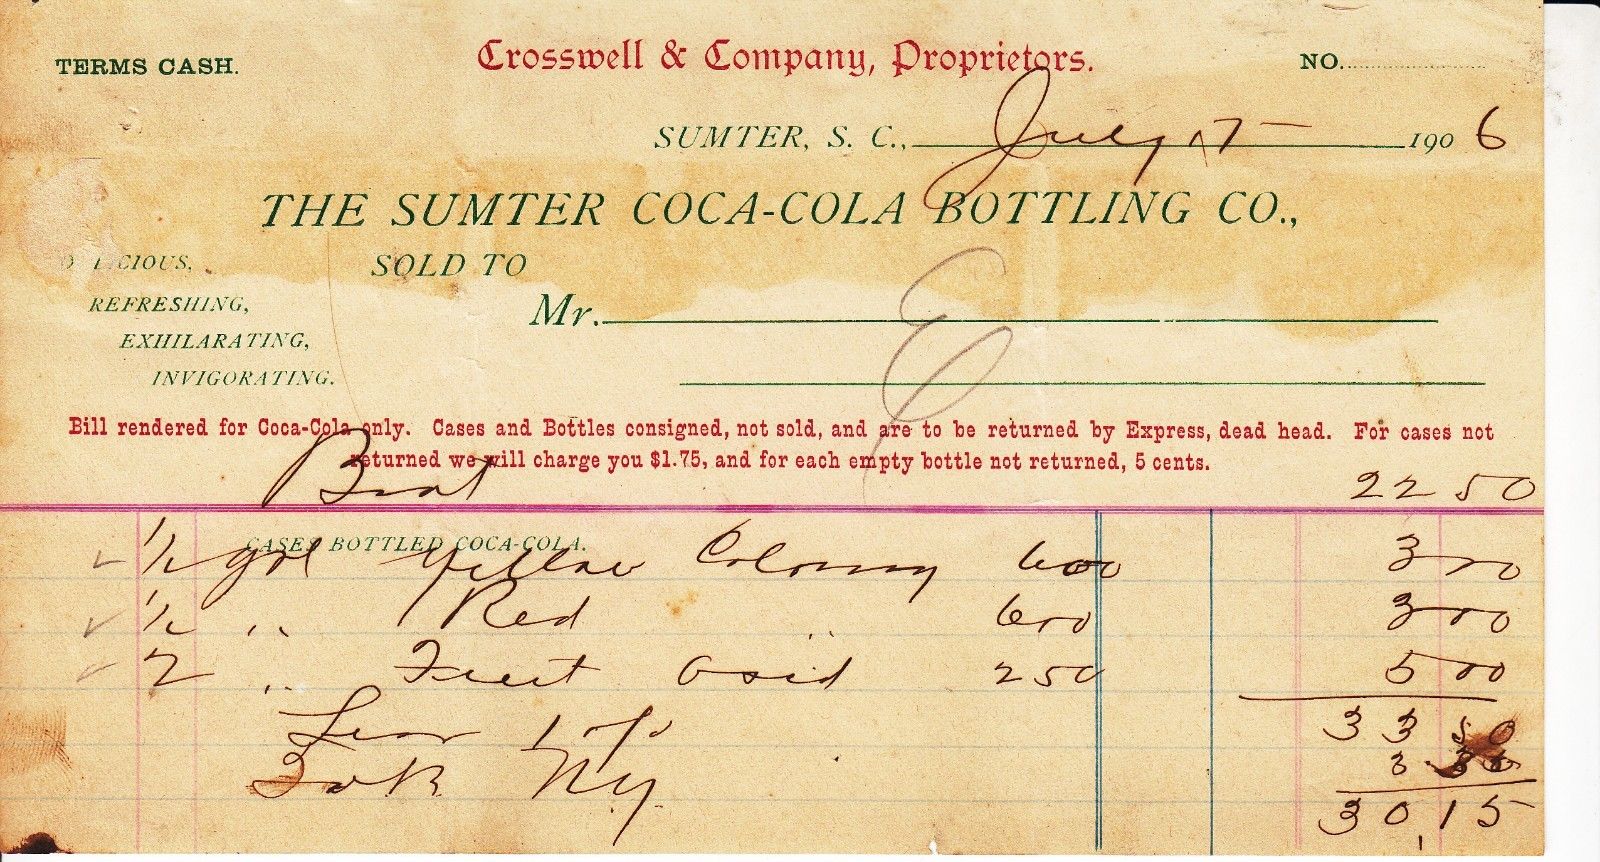 TERMS CASH. Crosswell & Company, Proprietors. NO.
SUMTER, S. C., July 17 1906
THE SUMTER COCA-COLA BOTTLING CO.,
SOLD TO
Mr.
REFRESHING,
EXHILARATING,
INVIGORATING.
Bill rendered for Coca-Cola only. Cases and Bottles consigned, not sold, and are to be returned by Express, dead head. For cases not
returned we will charge you $1.75, and for each empty bottle not returned, 5 cents.
22 50
CASES BOTTLED COCA-COLA.
1/2 gal Yellow Coloring 600 300
1/2 " Red 600 300
2 " Fruit 250 500
33 50
NY
30,15